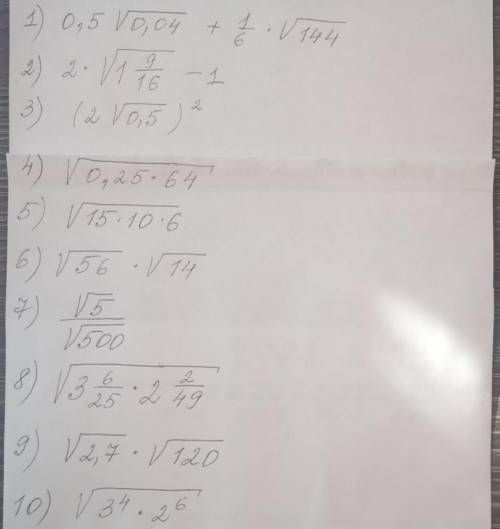 1) 0,5 √0,04 + 1/6 · √144
2) 2 · √1 9/16 - 1
3) (2 √0,5)²
4) √0,25 · 64
5) √15 · 10 · 6
6) √56 · √14
7) √5/√500
8) √3 6/25 · 2 2/49
9) √2,7 · √120
10) √3⁴ · 2⁶